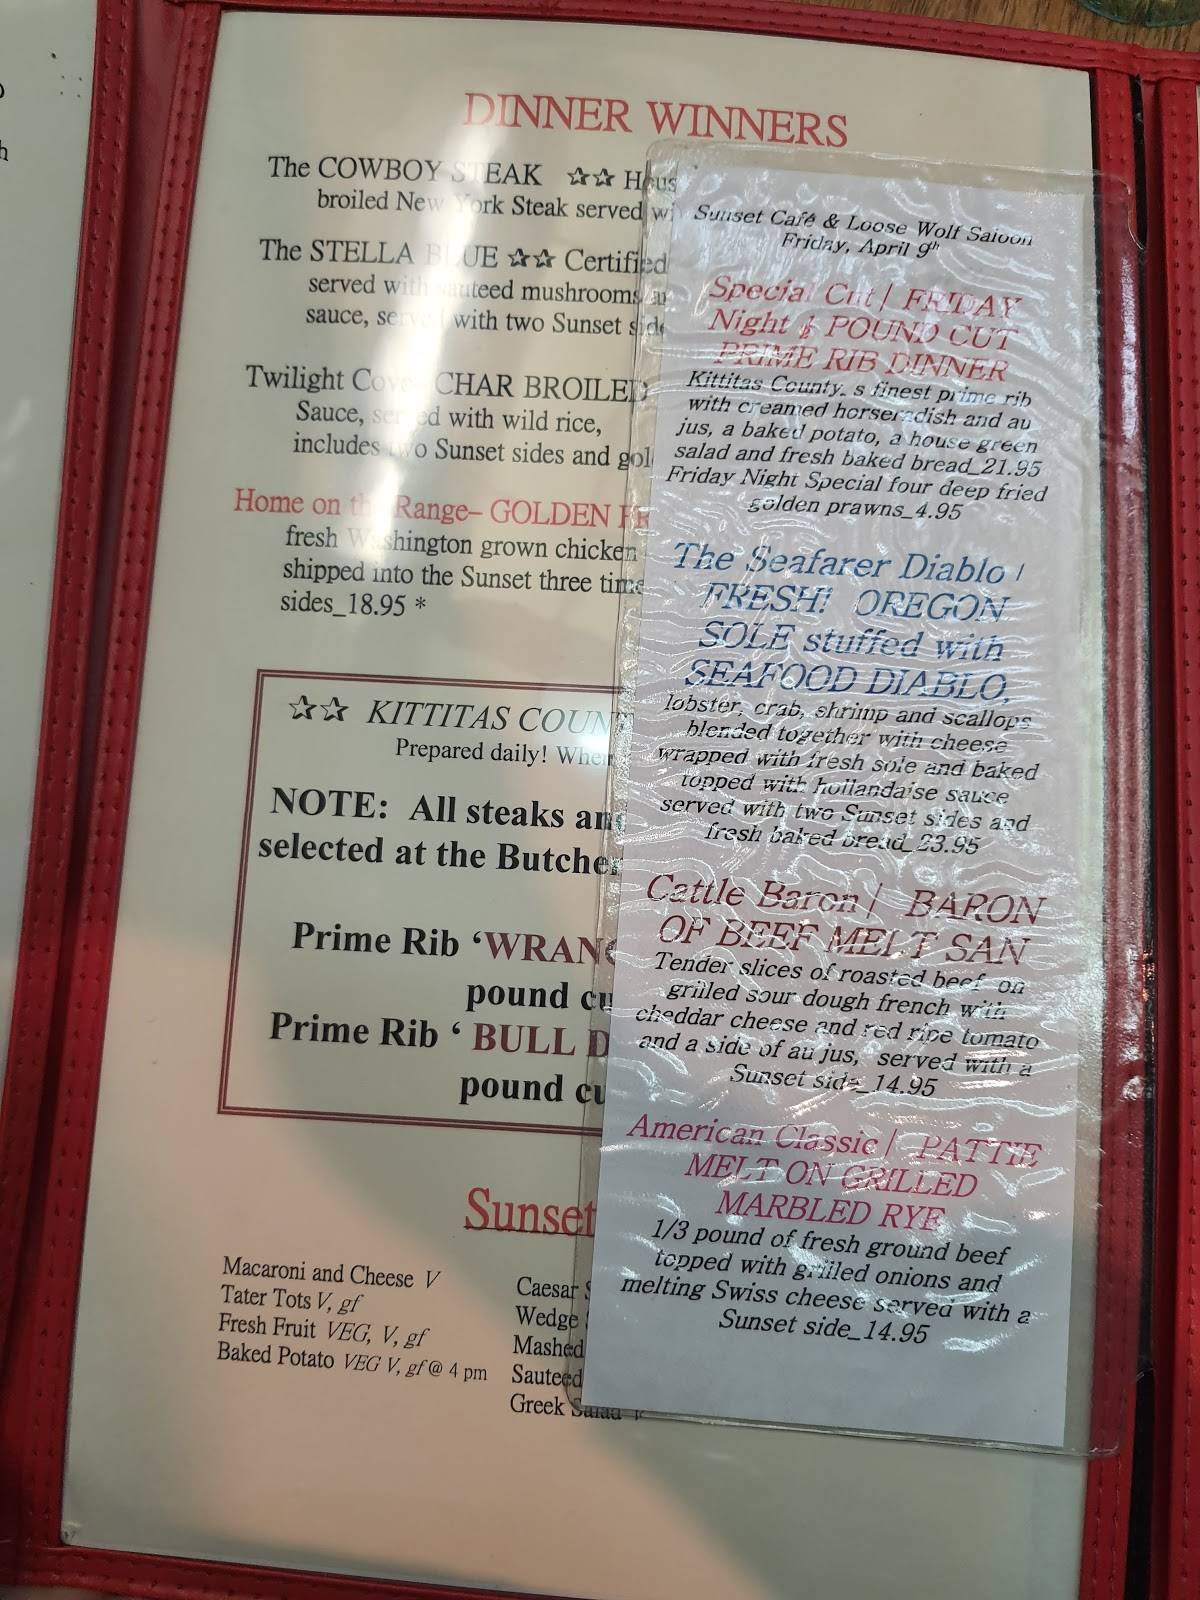 DINNER WINNERS
The COWBOY STEAK ☆☆ Hous
broiled New York Steak served wi
The STELLA BLUE ☆☆ Certified
served with sauteed mushrooms
sauce, served with two Sunset side
Twilight Cove– CHAR BROILED
Sauce, served with wild rice,
includes two Sunset sides and gol
Home on the Range– GOLDEN FR
fresh Washington grown chicken
shipped into the Sunset three time
sides_18.95 *
☆☆ KITTITAS COUNT
Prepared daily! When
NOTE: All steaks and
selected at the Butcher
Prime Rib ‘WRANG
pound cu
Prime Rib ‘ BULL D
pound cu
Sunset
Macaroni and Cheese V
Tater Tots V, gf
Fresh Fruit VEG, V, gf
Baked Potato VEG V, gf @ 4 pm
Caesar S
Wedge
Mashed
Sauteed
Greek Salad V
Sunset Café & Loose Wolf Saloon
Friday, April 9th
Special Cut | FRIDAY
Night ½ POUND CUT
PRIME RIB DINNER
Kittitas County, s finest prime rib
with creamed horseradish and au
jus, a baked potato, a house green
salad and fresh baked bread_21.95
Friday Night Special four deep fried
golden prawns_4.95
The Seafarer Diablo |
FRESH! OREGON
SOLE stuffed with
SEAFOOD DIABLO,
lobster, crab, shrimp and scallops
blended together with cheese
wrapped with fresh sole and baked
topped with hollandaise sauce
served with two Sunset sides and
fresh baked bread_23.95
Cattle Baron | BARON
OF BEEF MELT SAN
Tender slices of roasted beef on
grilled sour dough french with
cheddar cheese and red ripe tomato
and a side of au jus, served with a
Sunset side_14.95
American Classic | PATTIE
MELT ON GRILLED
MARBLED RYE
1/3 pound of fresh ground beef
topped with grilled onions and
melting Swiss cheese served with a
Sunset side_14.95